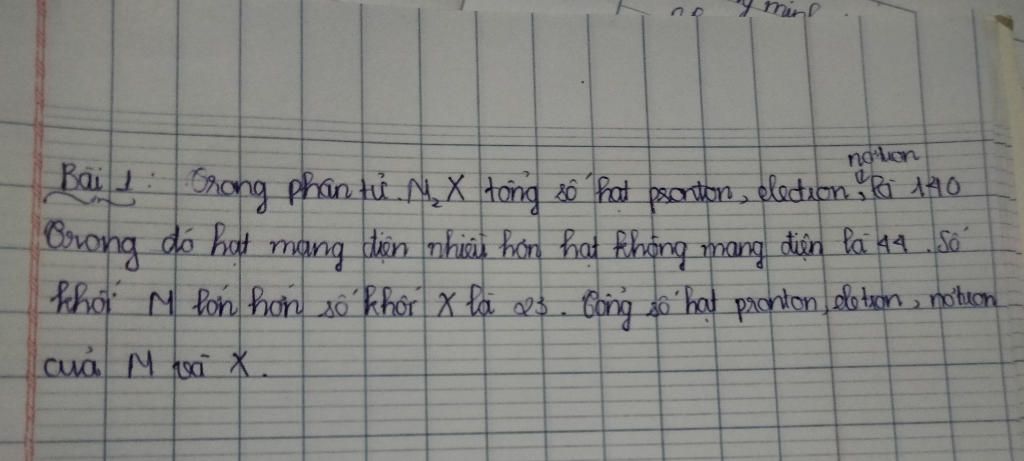 ng y minp
nơtron
Bài 1: Trong phân tử M₂X tổng số hạt pronton, electron, là 140
Trong đó hạt mang điện nhiều hơn hạt không mang điện là 44. Số
khối M lớn hơn số khối X là 23. Tổng số hạt pronton, eletron, nơtron
của M và X.